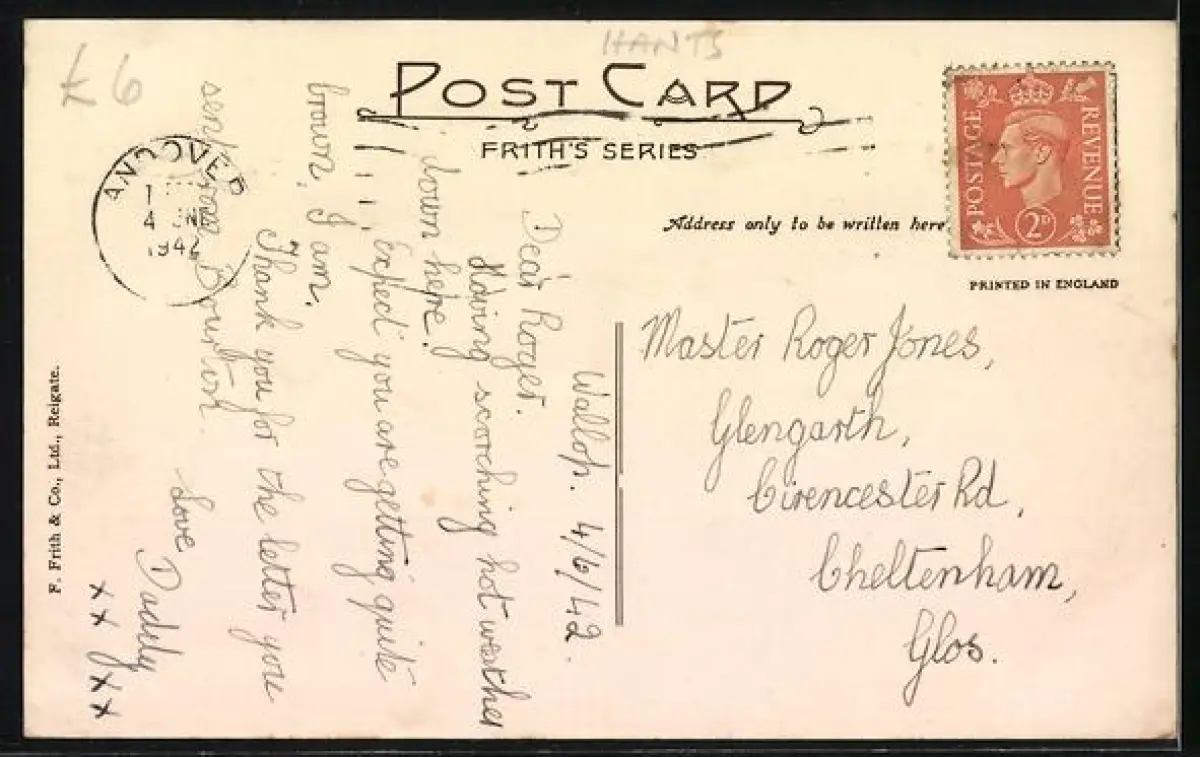 HANTS
£6
POST CARD
FRITH'S SERIES
Address only to be written here
POSTAGE
REVENUE
2D
PRINTED IN ENGLAND
ANDOVER
4 JNE
1942
Wallop. 4/6/42.
Dear Roger.
Having scorching hot weather
down here.
Expect you are getting quite
brown, I am.
Thank you for the letter you
sent from Bourton.
Love
Dadely
xx xx
Master Roger Jones,
Glengarth,
Cirencester Rd,
Cheltenham,
Glos.
F. Frith & Co., Ltd., Reigate.